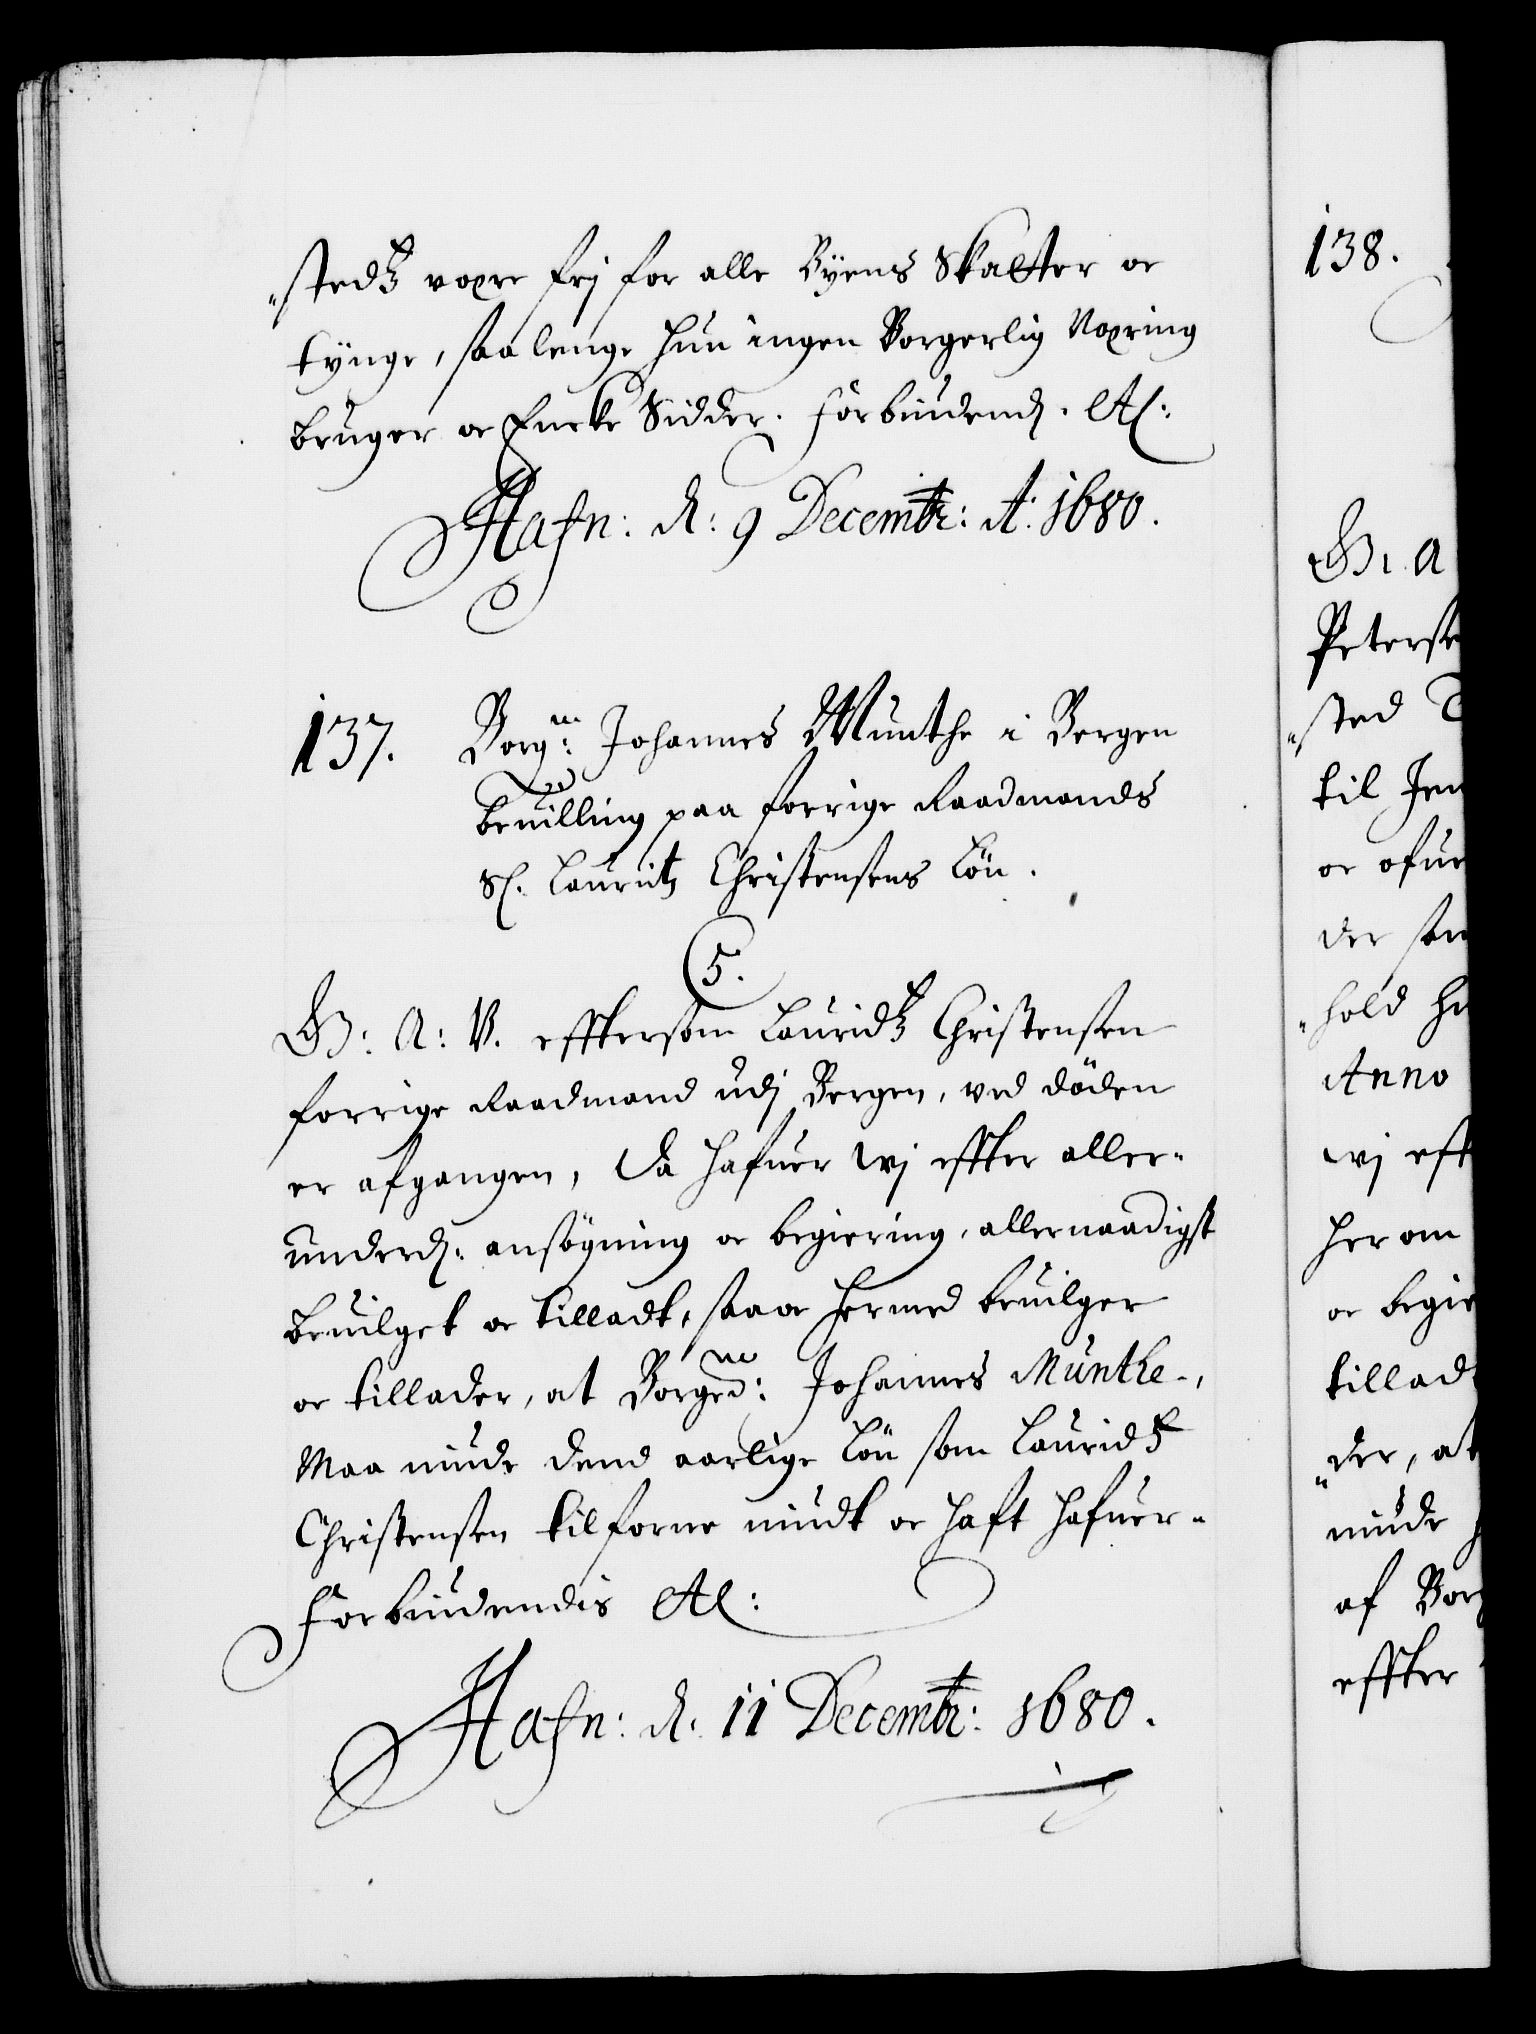 "stedtz være frj for alle Byens Skatter oc
tÿnge, saalenge hun ingen Borgerlig Næring
bruger oc Encke Sidder. Forbiudend. Etc:
Hafn: d: 9 Decembr: A: 1680.
137. Borgm: Johannes Munthe i Bergen
beuilling paa forrige Raadmands
Sl. Lauritz Christensens Løn.
5.
G: A: V. efftersom Lauridtz Christensen
forrige Raadmand udj Bergen, ved døden
er afgangen, Da hafuer Wj effter aller-
underd: ansøgning oc begiering, allernaadigst
beuilget oc tilladt, saa oc hermed beuilger
oc tillader, at Borgem: Johannes Munthe,
Maa niude dend aarlige Løn som Lauridtz
Christensen tilforne niudt oc haft hafuer.
Forbiudendis Etc:
Hafn: d. 11 Decembr: 1680.
138.
G. A
Peterse
"sted
til Jen
oc ofue
der som
"hold
Anno
wj eft
her om
oc begie
tillad
"der, at
niude
af Borg
effter